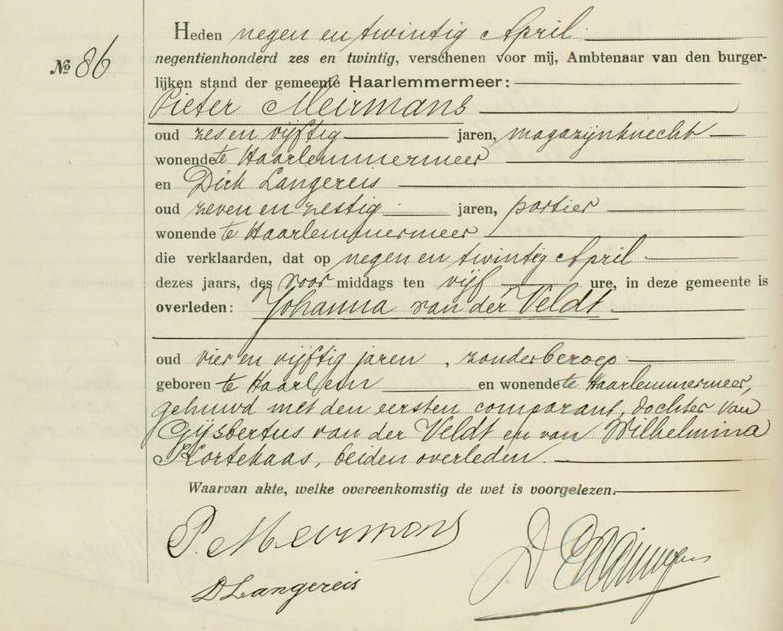 Heden negen en twintig April
№ 86
negentienhonderd zes en twintig, verschenen voor mij, Ambtenaar van den burger-
lijken stand der gemeente Haarlemmermeer:
Pieter Meirmans
oud zes en vijftig jaren, magazijnknecht
wonende te Haarlemmermeer
en Dirk Langereis
oud zeven en zestig jaren, portier
wonende te Haarlemmermeer
die verklaarden, dat op negen en twintig April
dezes jaars, des voor middags ten vijf ure, in deze gemeente is
overleden: Johanna van der Veldt
oud vier en vijftig jaren, zonder beroep
geboren te Haarlem en wonende te Haarlemmermeer,
gehuwd met den eersten comparant, dochter van
Gijsbertus van der Veldt en van Wilhelmina
Kortekaas, beiden overleden.
Waarvan akte, welke overeenkomstig de wet is voorgelezen.
P. Meirmans
D Langereis